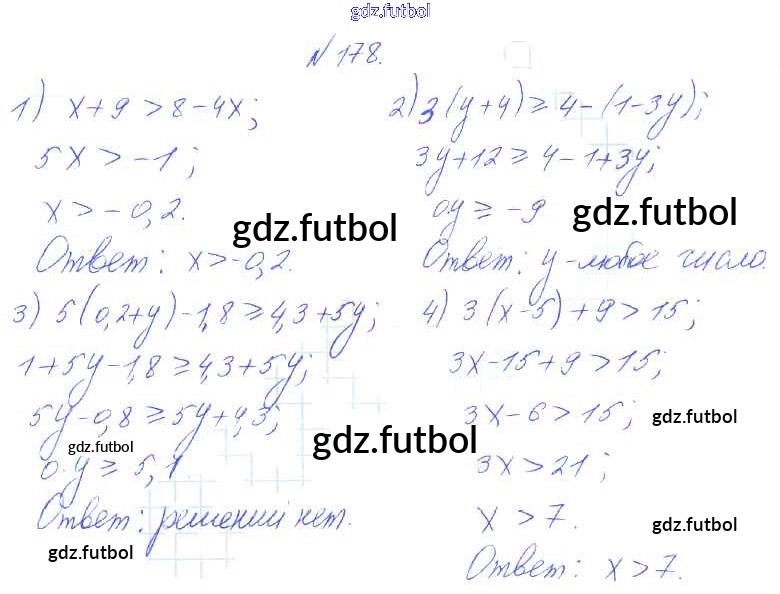 gdz.futbol
N 178.
1) x+9 >8-4x;
5x > -1;
x > -0,2.
gdz.futbol
Ответ: x>-0,2.
2) 3(y+4) ≥ 4-(1-3y);
3y+12 ≥ 4-1+3y;
0y ≥ -9
gdz.futbol
Ответ: y-любое число.
3) 5(0,2+y)-1,8 ≥ 4,3+5y;
1+5y-1,8 ≥ 4,3+5y;
5y-0,8 ≥ 5y+4,3;
gdz.futbol
gdz.futbol
0.y ≥ 5,1.
Ответ: решений нет.
gdz.futbol
4) 3(x-5)+9>15;
3x-15+9 >15;
3x-6 > 15;
gdz.futbol
3x > 21;
x > 7.
gdz.futbol
Ответ: x>7.